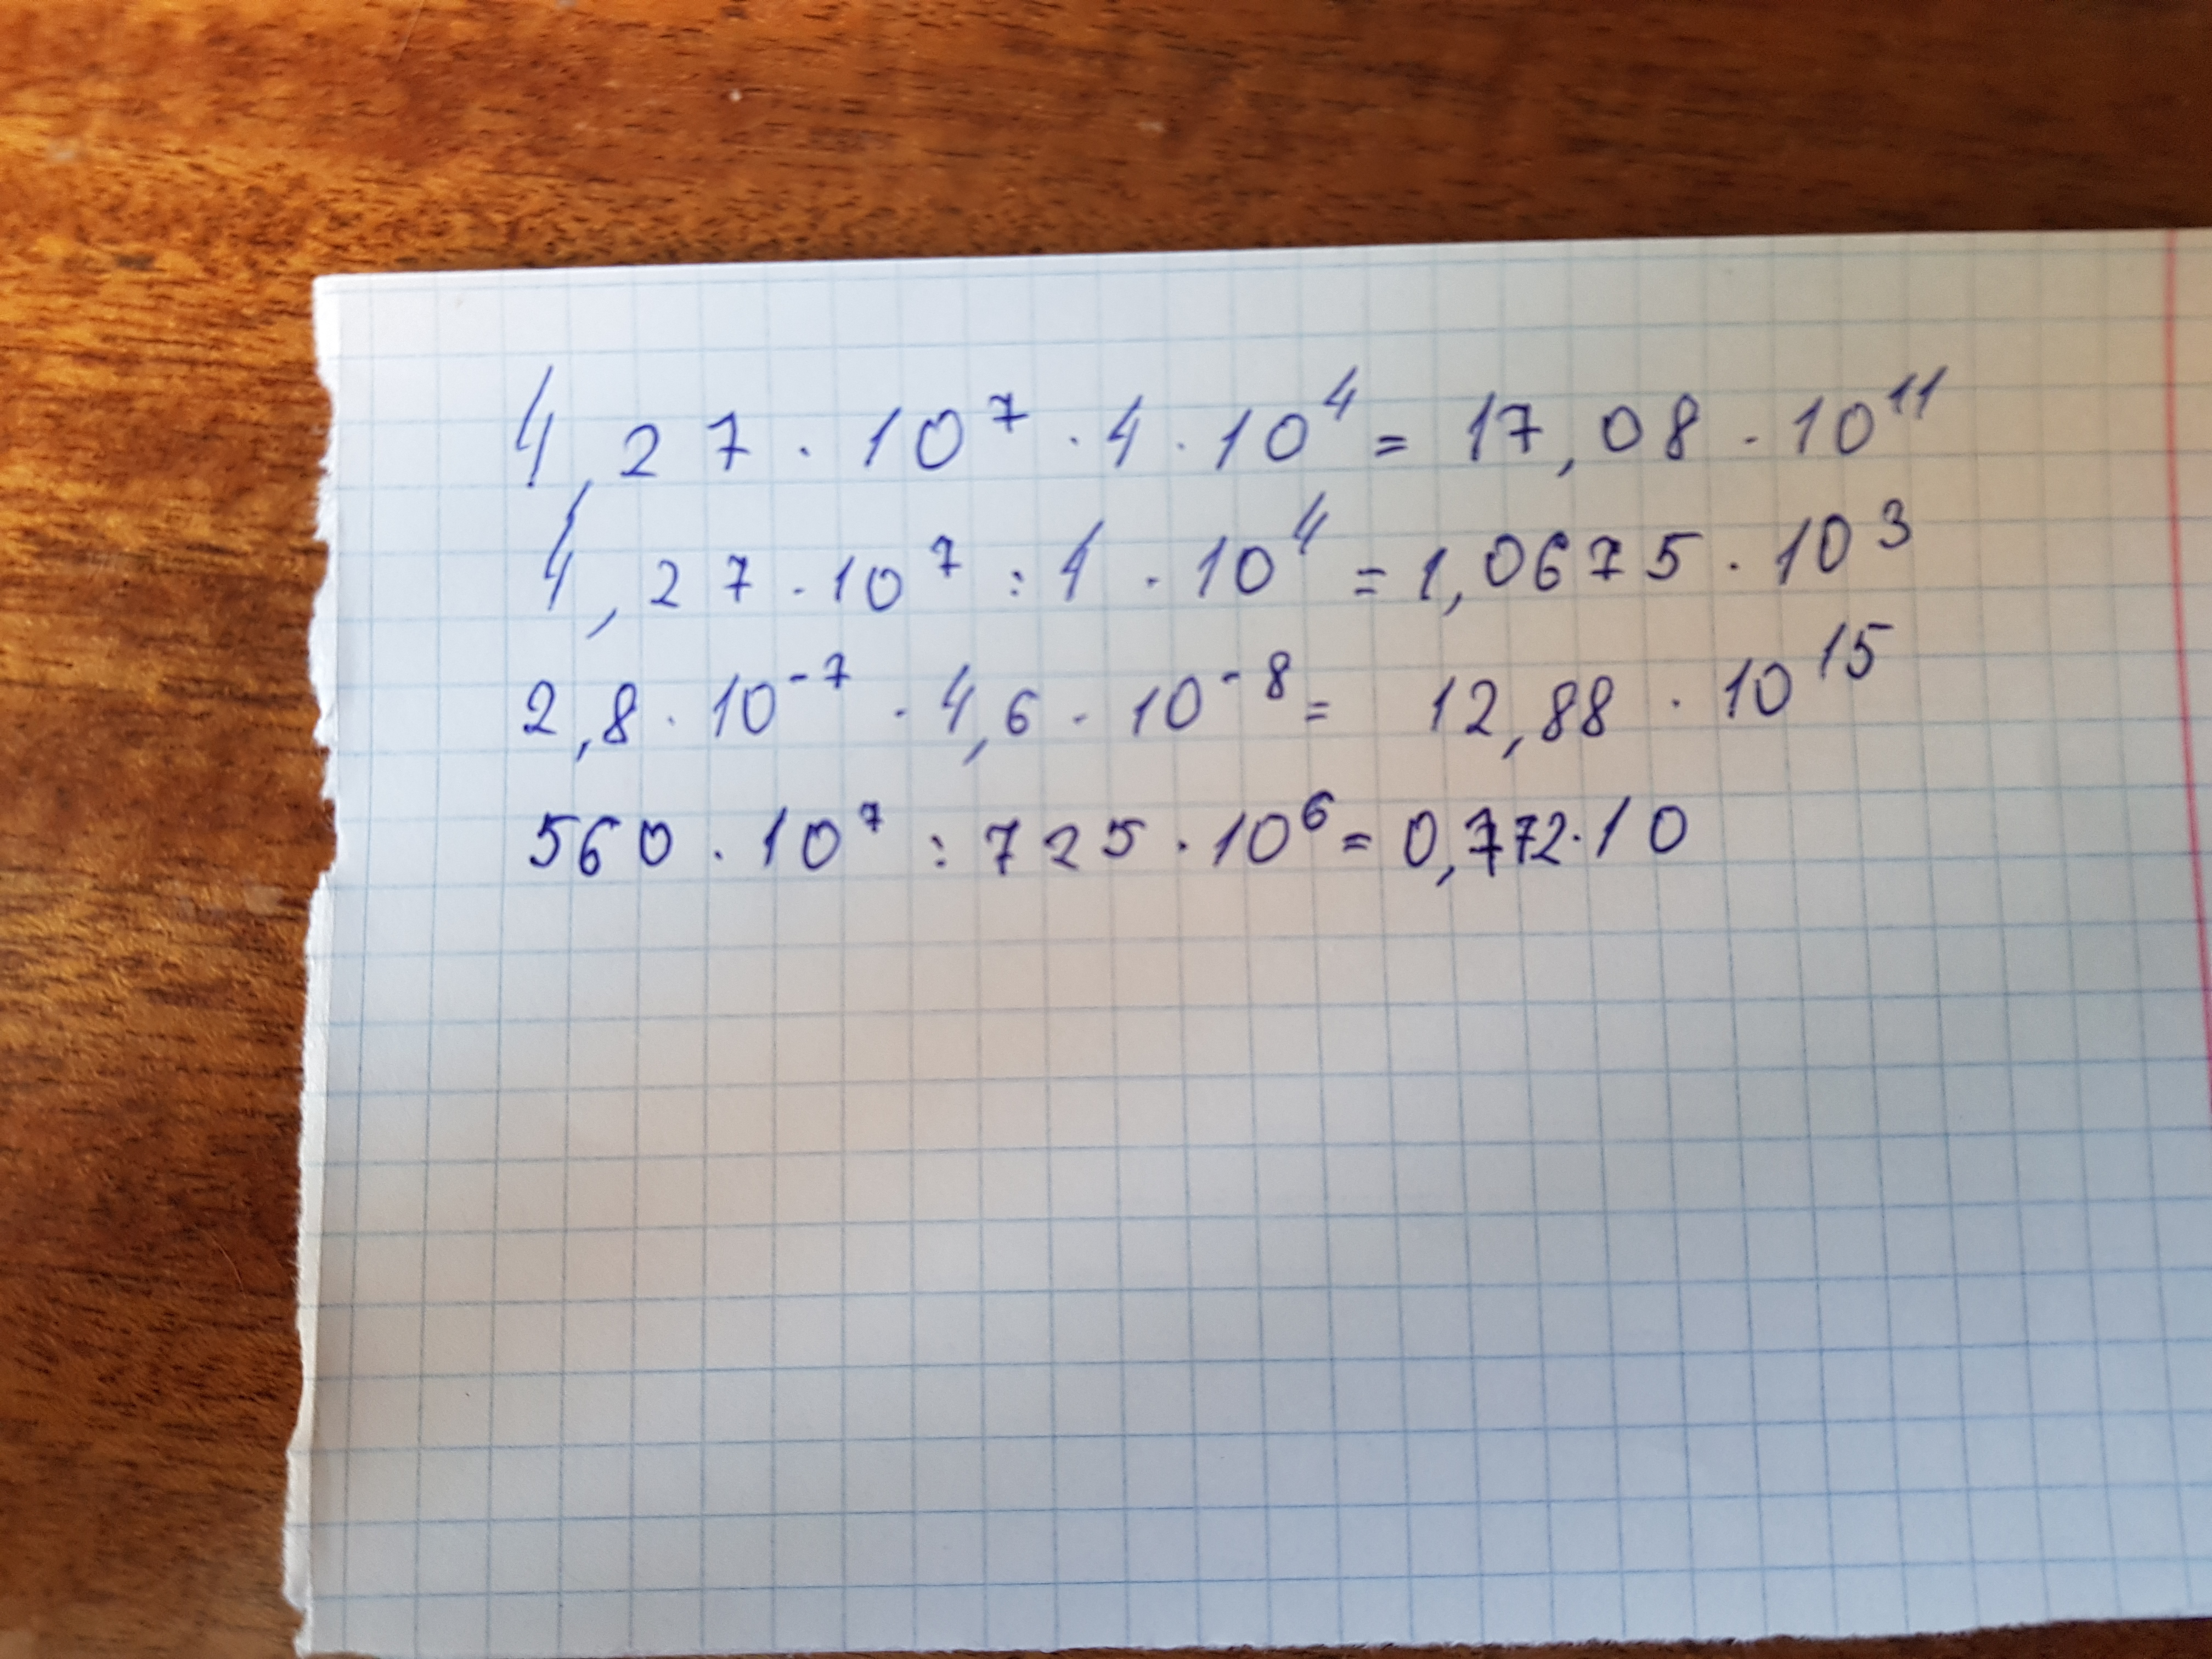 4,27 · 10⁷ · 4 · 10⁴ = 17,08 · 10¹¹
4,27 · 10⁷ : 4 · 10⁴ = 1,0675 · 10³
2,8 · 10⁻⁷ · 4,6 · 10⁻⁸ = 12,88 · 10¹⁵
560 · 10⁷ : 725 · 10⁶ = 0,772 · 10